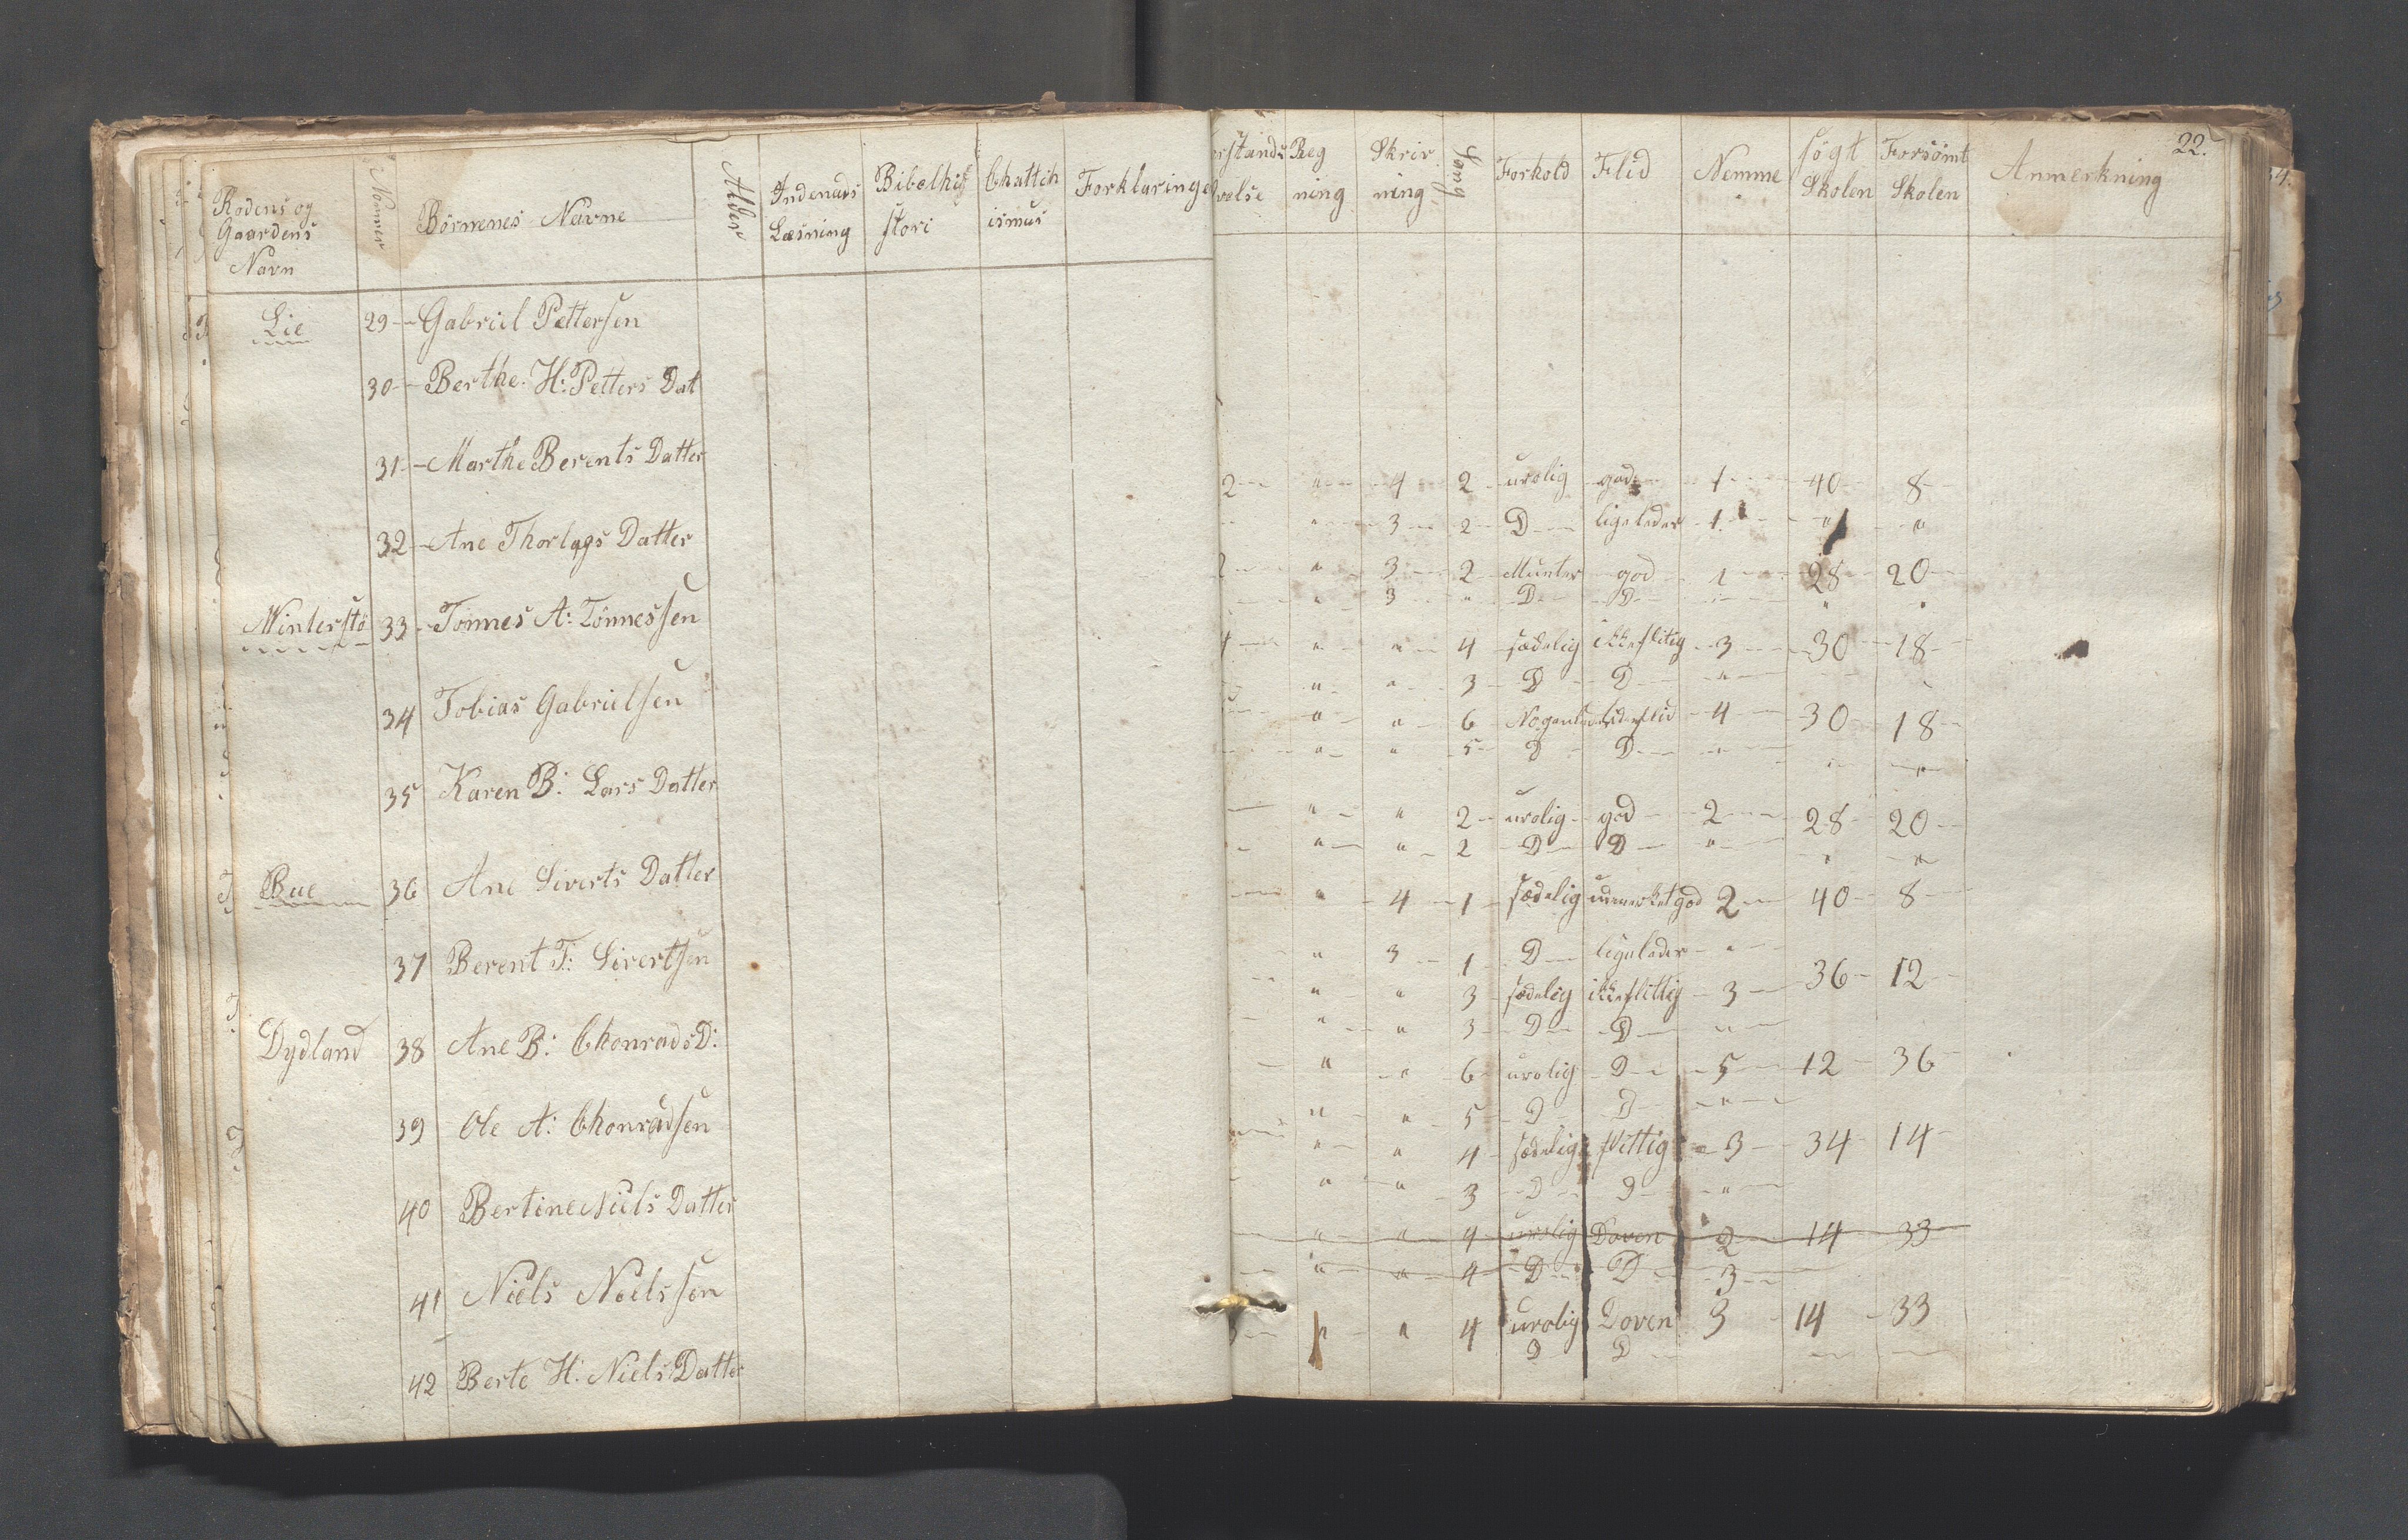 Rodens og Gaardens Navn | Nomer | Börnenes Navne | Alder | Indenads Læsning | Bibelhisstori | Chattichismus | Forklaringe
Lie 29 - Gabriel Pettersen
30 - Berthe H: Petters Dat
31 - Marthe Berents Datter
32 - Ane Thorlags Datter
Winterstö 33 - Tönnes A: Tönnessen
34 Tobias Gabrielsen
35 Karen B: Lars Datter
Bue 36 Ane Siverts Datter
37 Berent T: Sivertsen
Dydland 38 Ane B: Chonrads D:
39 Ole A: Chonradsen
40 Bertine Niels Datter
41 Niels Nielssen
42 Berte H: Niels Datter
22.
rstands velse | Reg ning | Skriv ning | Sang | Forhold | Flid | Nemme | søgt Skolen | Forsömt Skolen | Anmerkning
2 " 4 2 urolig god 1 40 8
" 3 2 D ligeledes 1 " "
2 " 3 2 Munter god 1 28 20
" 3 " D D " "
4 " " 4 sædelig ikke flitig 3 30 18
" " 3 D D "
" " 6 4 30 18
" " 5 D D " " "
" " 2 urolig god 2 28 20
" " 2 D D " " "
" 4 1 sædelig udmerket god 2 40 8
" 3 1 D ligeleder "
" " 3 sædelig ikke flittig 3 36 12
" " 3 D D "
" " 6 urolig D 5 12 36
" " 5 D D "
" " 4 sædelig flittig 3 34 14
" " 3 D D "
" " 4 urolig Doven 2 14 33
" " 4 D D 3
" " 4 urolig Doven 3 14 33
D D